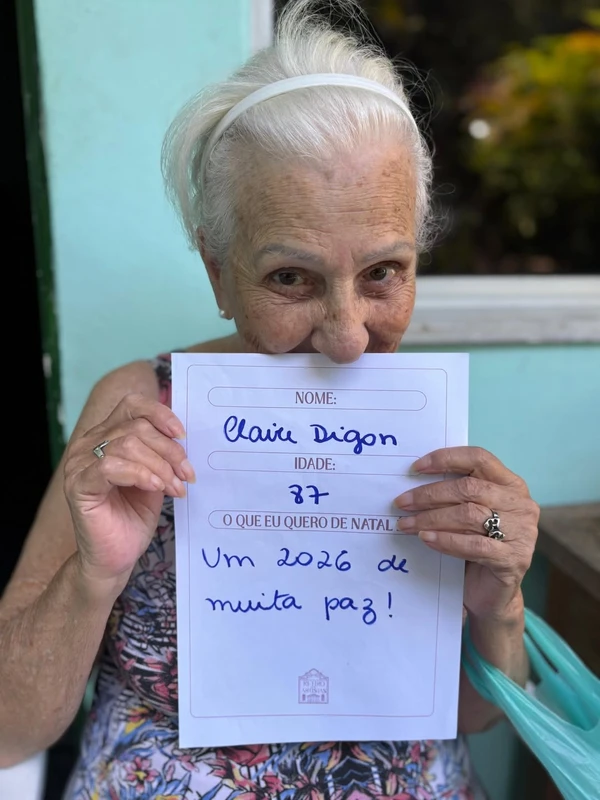 NOME:
Claire Digon
IDADE:
87
O QUE EU QUERO DE NATAL
Um 2026 de
muita paz!